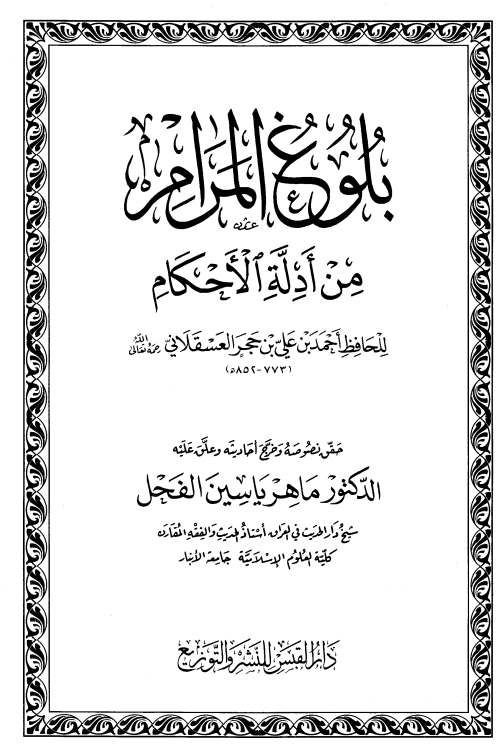 بُلُوغُ المَرَامِ
مِنْ أَدِلَّةِ الأَحْكَامِ
لِلحَافِظِ أَحْمَدَ بْنِ عَلِيِّ بْنِ حَجَرٍ العَسْقَلَانِي رحمه الله تعالى
(٧٧٣-٨٥٢هـ)
حَقَّقَ نُصُوصَهُ وَخَرَّجَ أَحَادِيثَه وَعَلَّقَ عَلَيْه
الدكتور ماهر ياسين الفحل
شيخ دار الحديث في العراق أستاذ الحديث والفقه المقارن
كلية العلوم الإسلامية جامعة الأنبار
دار القبس للنشر والتوزيع